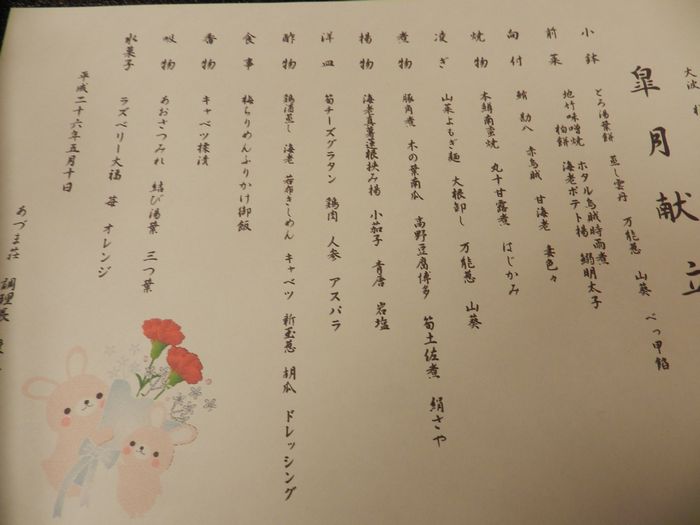 皐月献立
小鉢 とろ湯葉餅 蒸し雲丹 万能葱 山葵 べっ甲餡
前菜 地竹味噌焼 ホタル烏賊時雨煮
柏餅 海老ポテト揚 鰯明太子
向付 鮪 勘八 赤烏賊 甘海老 妻色々
焼物 本鱒南蛮焼 丸十甘露煮 はじかみ
凌ぎ 山菜よもぎ麺 大根卸し 万能葱 山葵
煮物 豚角煮 木の葉南瓜 高野豆腐博多 筍土佐煮 絹さや
揚物 海老真薯蓮根挟み揚 小茄子 青唐 岩塩
洋皿 筍チーズグラタン 鶏肉 人参 アスパラ
酢物 鶏酒蒸し 海老 若布きしめん キャベツ 新玉葱 胡瓜 ドレッシング
食事 梅ちりめんふりかけ御飯
香物 キャベツ揉漬
吸物 あおさつみれ 結び湯葉 三つ葉
水菓子 ラズベリー大福 苺 オレンジ
平成二十六年五月十日
あづま荘 調理長